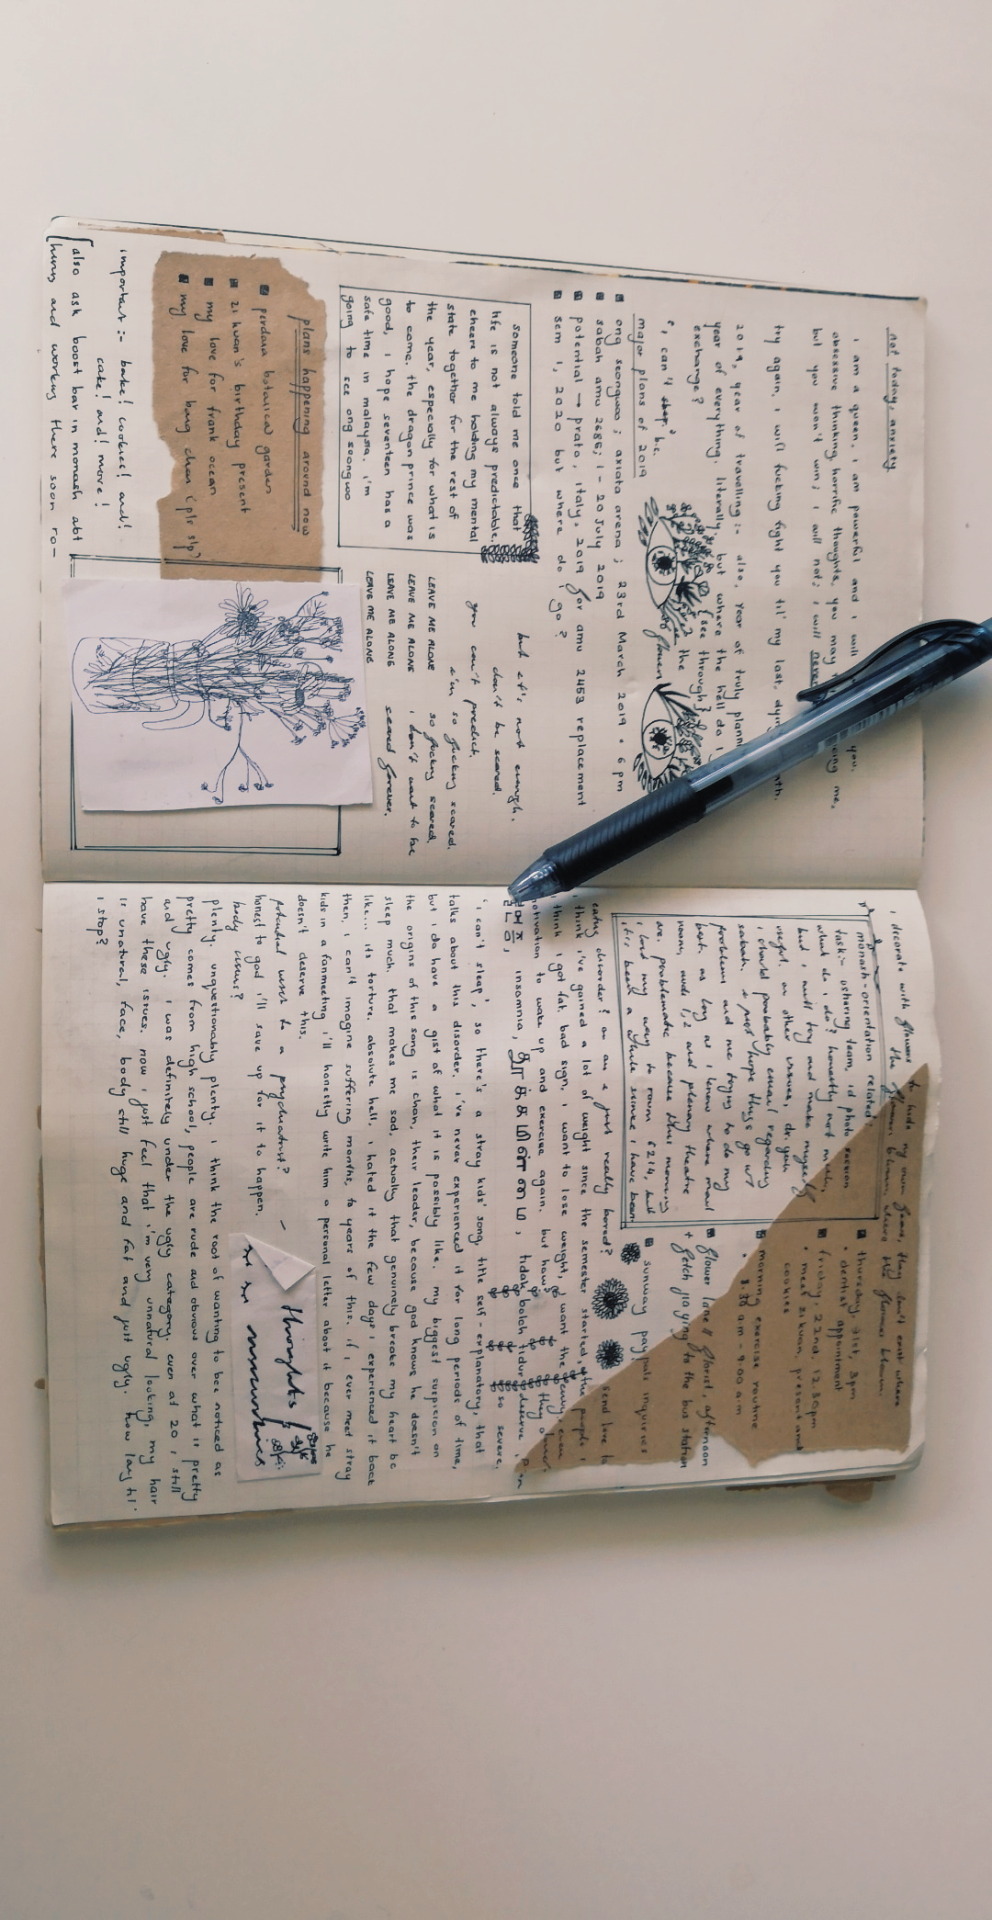 not today, anxiety
i am a queen. i am powerful and i will you,
obsessive thinking, horrific thoughts, you may me,
but you won't win; i will not; i will never
try again, i will fucking fight you til' my last,
2019, year of travelling :- also, year of truly
year of everything, literally, but where the hell do i
exchange? {see through} the flowers
", i can't stop." b.c.
major plans of 2019
ong seongwoo ; axiata arena ; 23rd March 2019 • 6 pm
sabah amu 2686; 1 - 20 July 2019
potential → prato, italy, 2019 for amu 2453 replacement
sem 1, 2020 but where do i go ?
someone told me once that
life is not always predictable.
cheers to me holding my mental
state together for the rest of
the year, especially for what is
to come. the dragon prince was
good, i hope seventeen has a
safe time in malaysia. i'm
going to see ong seongwoo
but it's not enough.
don't be scared.
you can't predict.
i'm so fucking scared.
LEAVE ME ALONE so fucking scared.
LEAVE ME ALONE i don't want to be
LEAVE ME ALONE scared forever.
LEAVE ME ALONE
plans happening around now
perdana botanical garden
zi kwan's birthday present
my love for frank ocean
my love for bang chan (pls slp?
important :- bake! cookies! and!
cake! and! move!
also ask boost bar in monash abt
hiring and working there soon ro-
i decorate with flowers to hide my own fears, they don't exist where
the flowers bloom, where the flowers bloom.
monash-orientation related:
task:- ushering team, id photo session
what do i do? honestly not much,
but i will try and make myself
useful. on other issues, dr. yeoh
i should probably email regarding
sabah. i just hope things go w/
problems and me trying to do my
best. as long as i know where mail
room, audi 1,2 and plenary theatre
are. problematic because this morning
i lost my way to room 6214, but
it's been a while since i have been
thursday 21st, 3pm
• dentist appointment
friday, 22nd, 12.30pm
• meet zi kwan, present and
cookies
morning exercise routine
• 8.30 a.m - 9.00 a.m
flower lane // florist, afternoon
+ fetch jia ying to the bus station
sunway paypals inquiries
send love to
eating disorder? or am i just really bored?
i think i've gained a lot of weight since the semester started,
i think i got fat. bad sign. i want to lose weight, i want the
motivation to wake up and exercise again. but how? they
불면증, insomnia, தூக்கமின்மை, tidak boleh tidur deserve so severe.
'i can't sleep', so there's a stray kids' song, title self-explanatory, that
talks about this disorder. i've never experienced it for long periods of time,
but i do have a gist of what it is possibly like. my biggest suspicion on
the origins of this song is chan, their leader, because god knows he doesn't
sleep much. that makes me sad, actually that genuinely broke my heart bc
like... its torture. absolute hell. i hated it the few days i experienced it back
then, i can't imagine suffering months, to years of this. if i ever meet stray
kids in a fanmeeting i'll honestly write him a personal letter about it because he
doesn't deserve this.
potential visit to a psychiatrist? —
honest to god i'll save up for it to happen.
body issues?
plenty. unquestionably plenty. i think the root of wanting to be noticed as
pretty comes from high school, people are rude and obvious over what is pretty
and ugly. i was definitely under the ugly category. even at 20 i still
have these issues. now i just feel that i'm very unnatural looking. my hair
is unnatural, face, body still huge and fat and just ugly. how long til'
i stop?
thoughts /
insecurities